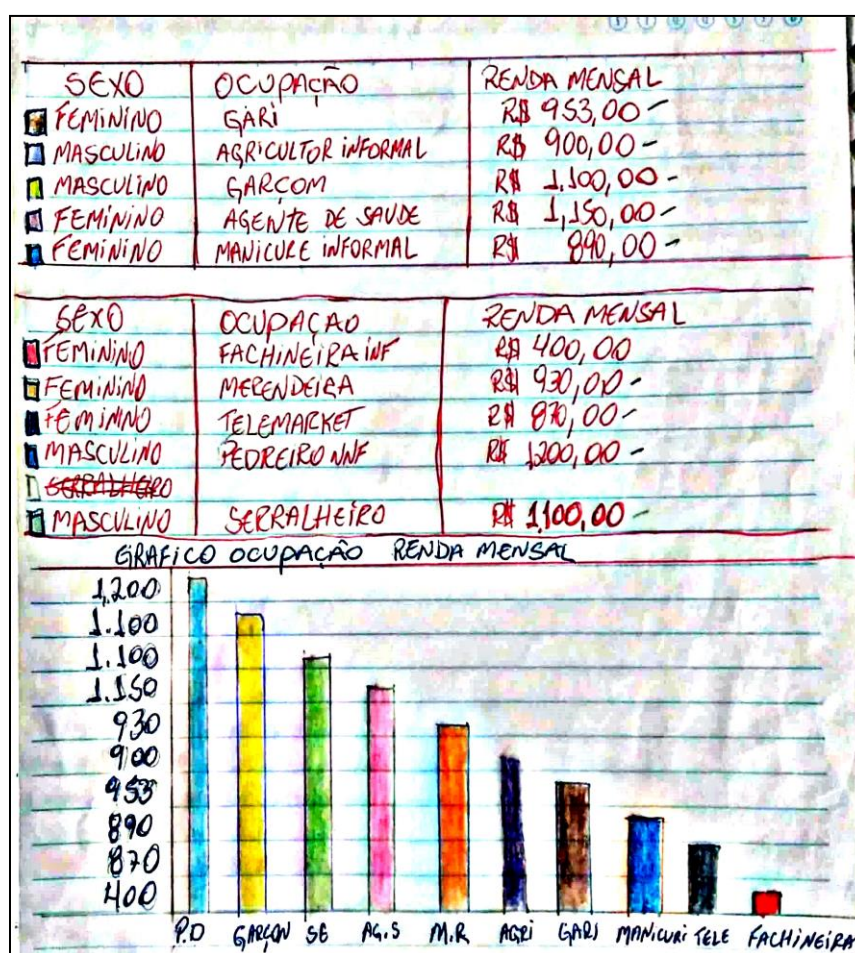 SEXO OCUPAÇÃO RENDA MENSAL
FEMININO GARI R$ 953,00-
MASCULINO AGRICULTOR INFORMAL R$ 900,00-
MASCULINO GARÇOM R$ 1.100,00-
FEMININO AGENTE DE SAUDE R$ 1,150,00-
FEMININO MANICURE INFORMAL R$ 890,00-
SEXO OCUPAÇAO RENDA MENSAL
FEMININO FACHINEIRA INF R$ 400,00
FEMININO MERENDEIRA R$ 930,00-
FEMININO TELEMARKET R$ 870,00-
MASCULINO PEDREIRO INF R$ 1200,00-
SERRALHEIRO
MASCULINO SERRALHEIRO R$ 1.100,00-
GRAFICO OCUPAÇÃO RENDA MENSAL
1,200
1.100
1.100
1.150
930
900
953
890
870
400
P.D GARÇON SE AG.S M.R AGRI GARI MANICURI TELE FACHINEIRA